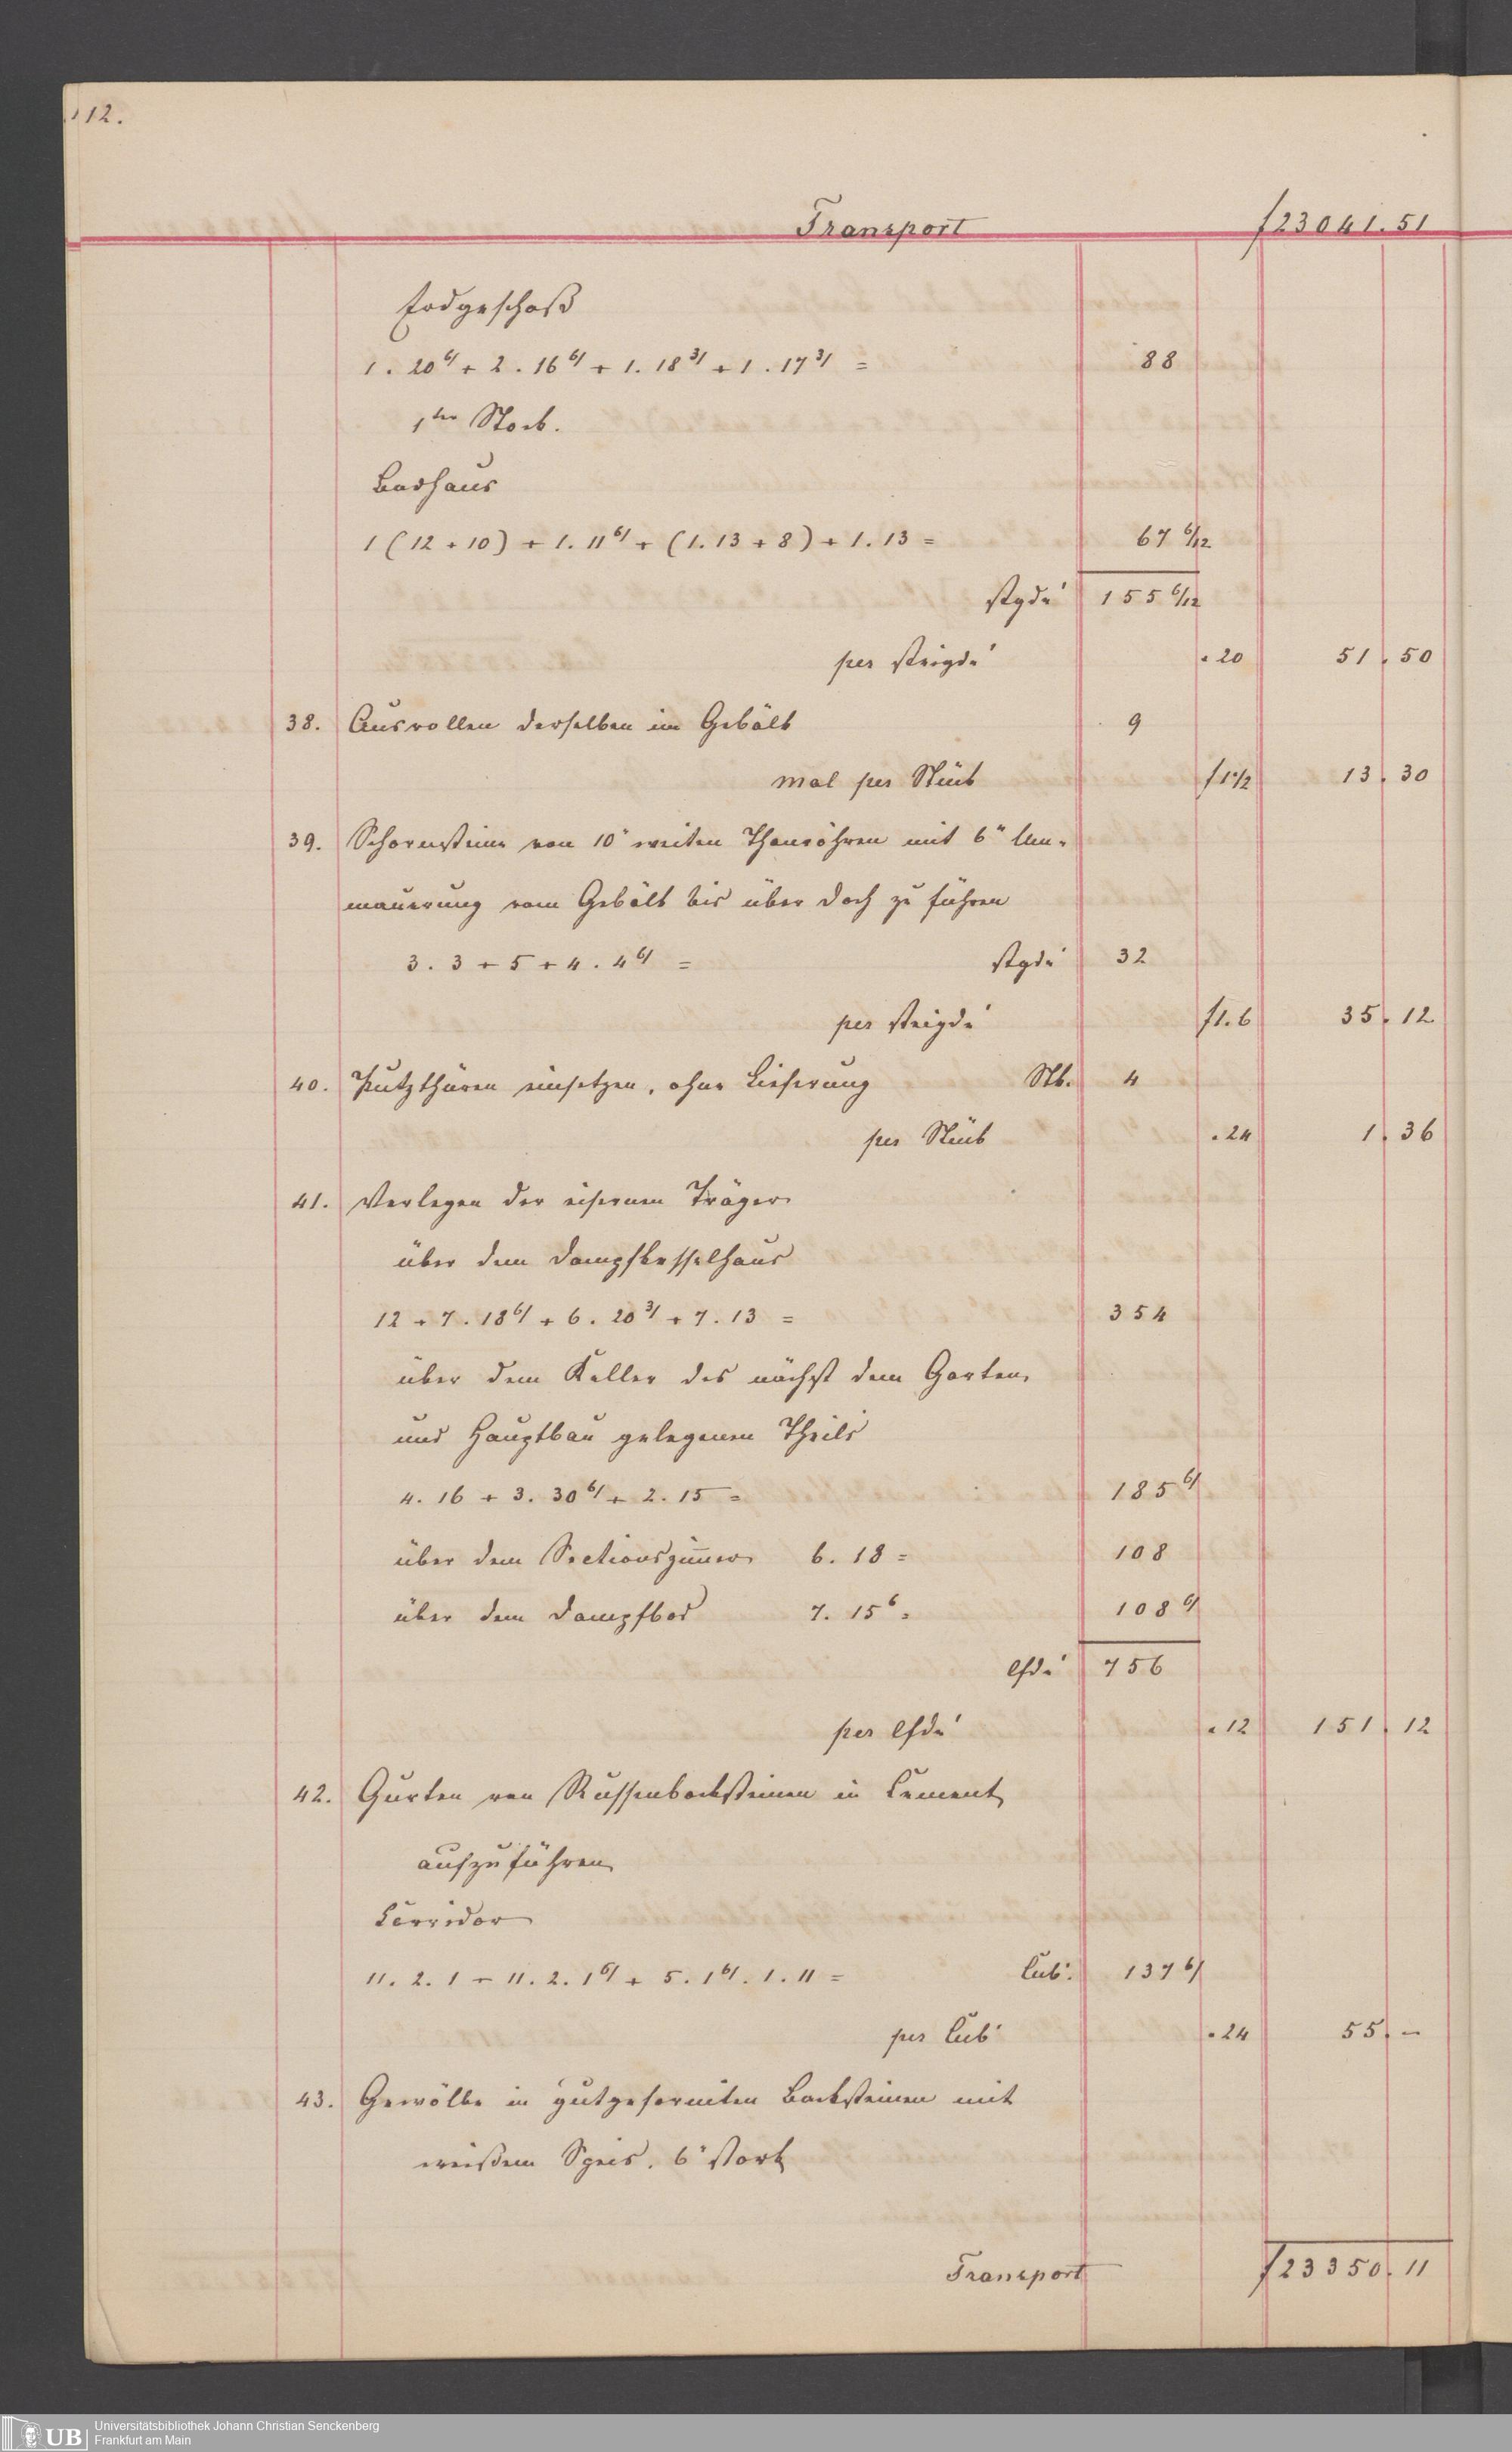 12.
Transport f 23041. 51
Erdgeschoß
1. 20 6/ + 2. 16 6/ + 1. 18 3/ + 1. 17 3/ = 88
1ter Stock.
Badhaus
1 (12 + 10) + 1. 11 6/ + (1. 13 + 8) + 1. 13 = 67 6/12
stgde ' 155 6/12
per steigde ' . 20 51. 50
38. Ausrollen derselben im Gebälk 9
mal per Stück f 1 1/2 13. 30
39. Schornsteine von 10" weiten Thonröhren mit 6" Um-
mauerung vom Gebälk bis über Dach zu führen
3. 3 + 5 + 4. 4 6/ = stgde ' 32
per steigde ' f 1. 6 35. 12
40. Putzthüren einsetzen, ohne Lieferung Stk. 4
per Stück . 24 1. 36
41. Verlegen der eisernen Träger
über dem Dampfkesselhaus
12 + 7. 18 6/ + 6. 20 3/ + 7. 13 = 354
über dem Keller des nächst dem Garten
und Hauptbau gelegenen Theils
4. 16 + 3. 30 6/ + 2. 15 = 185 6/
über dem Sectionszimmer 6. 18 = 108
über dem Dampfbad 7. 15 6 = 108 6/
lfde ' 756
per lfde ' . 12 151. 12
42. Gurten von Russenbacksteinen in Cement
aufzuführen
Corridor
11. 2. 1 + 11. 2. 1 6/ + 5. 1 6/. 1. 11 = Cub'. 137 6/
per Cub' . 24 55. –
43. Gewölbe in gutgeformten Backsteinen mit
weißem Speis, 6" stark
Transport f 23350. 11
UB
Universitätsbibliothek Johann Christian Senckenberg
Frankfurt am Main